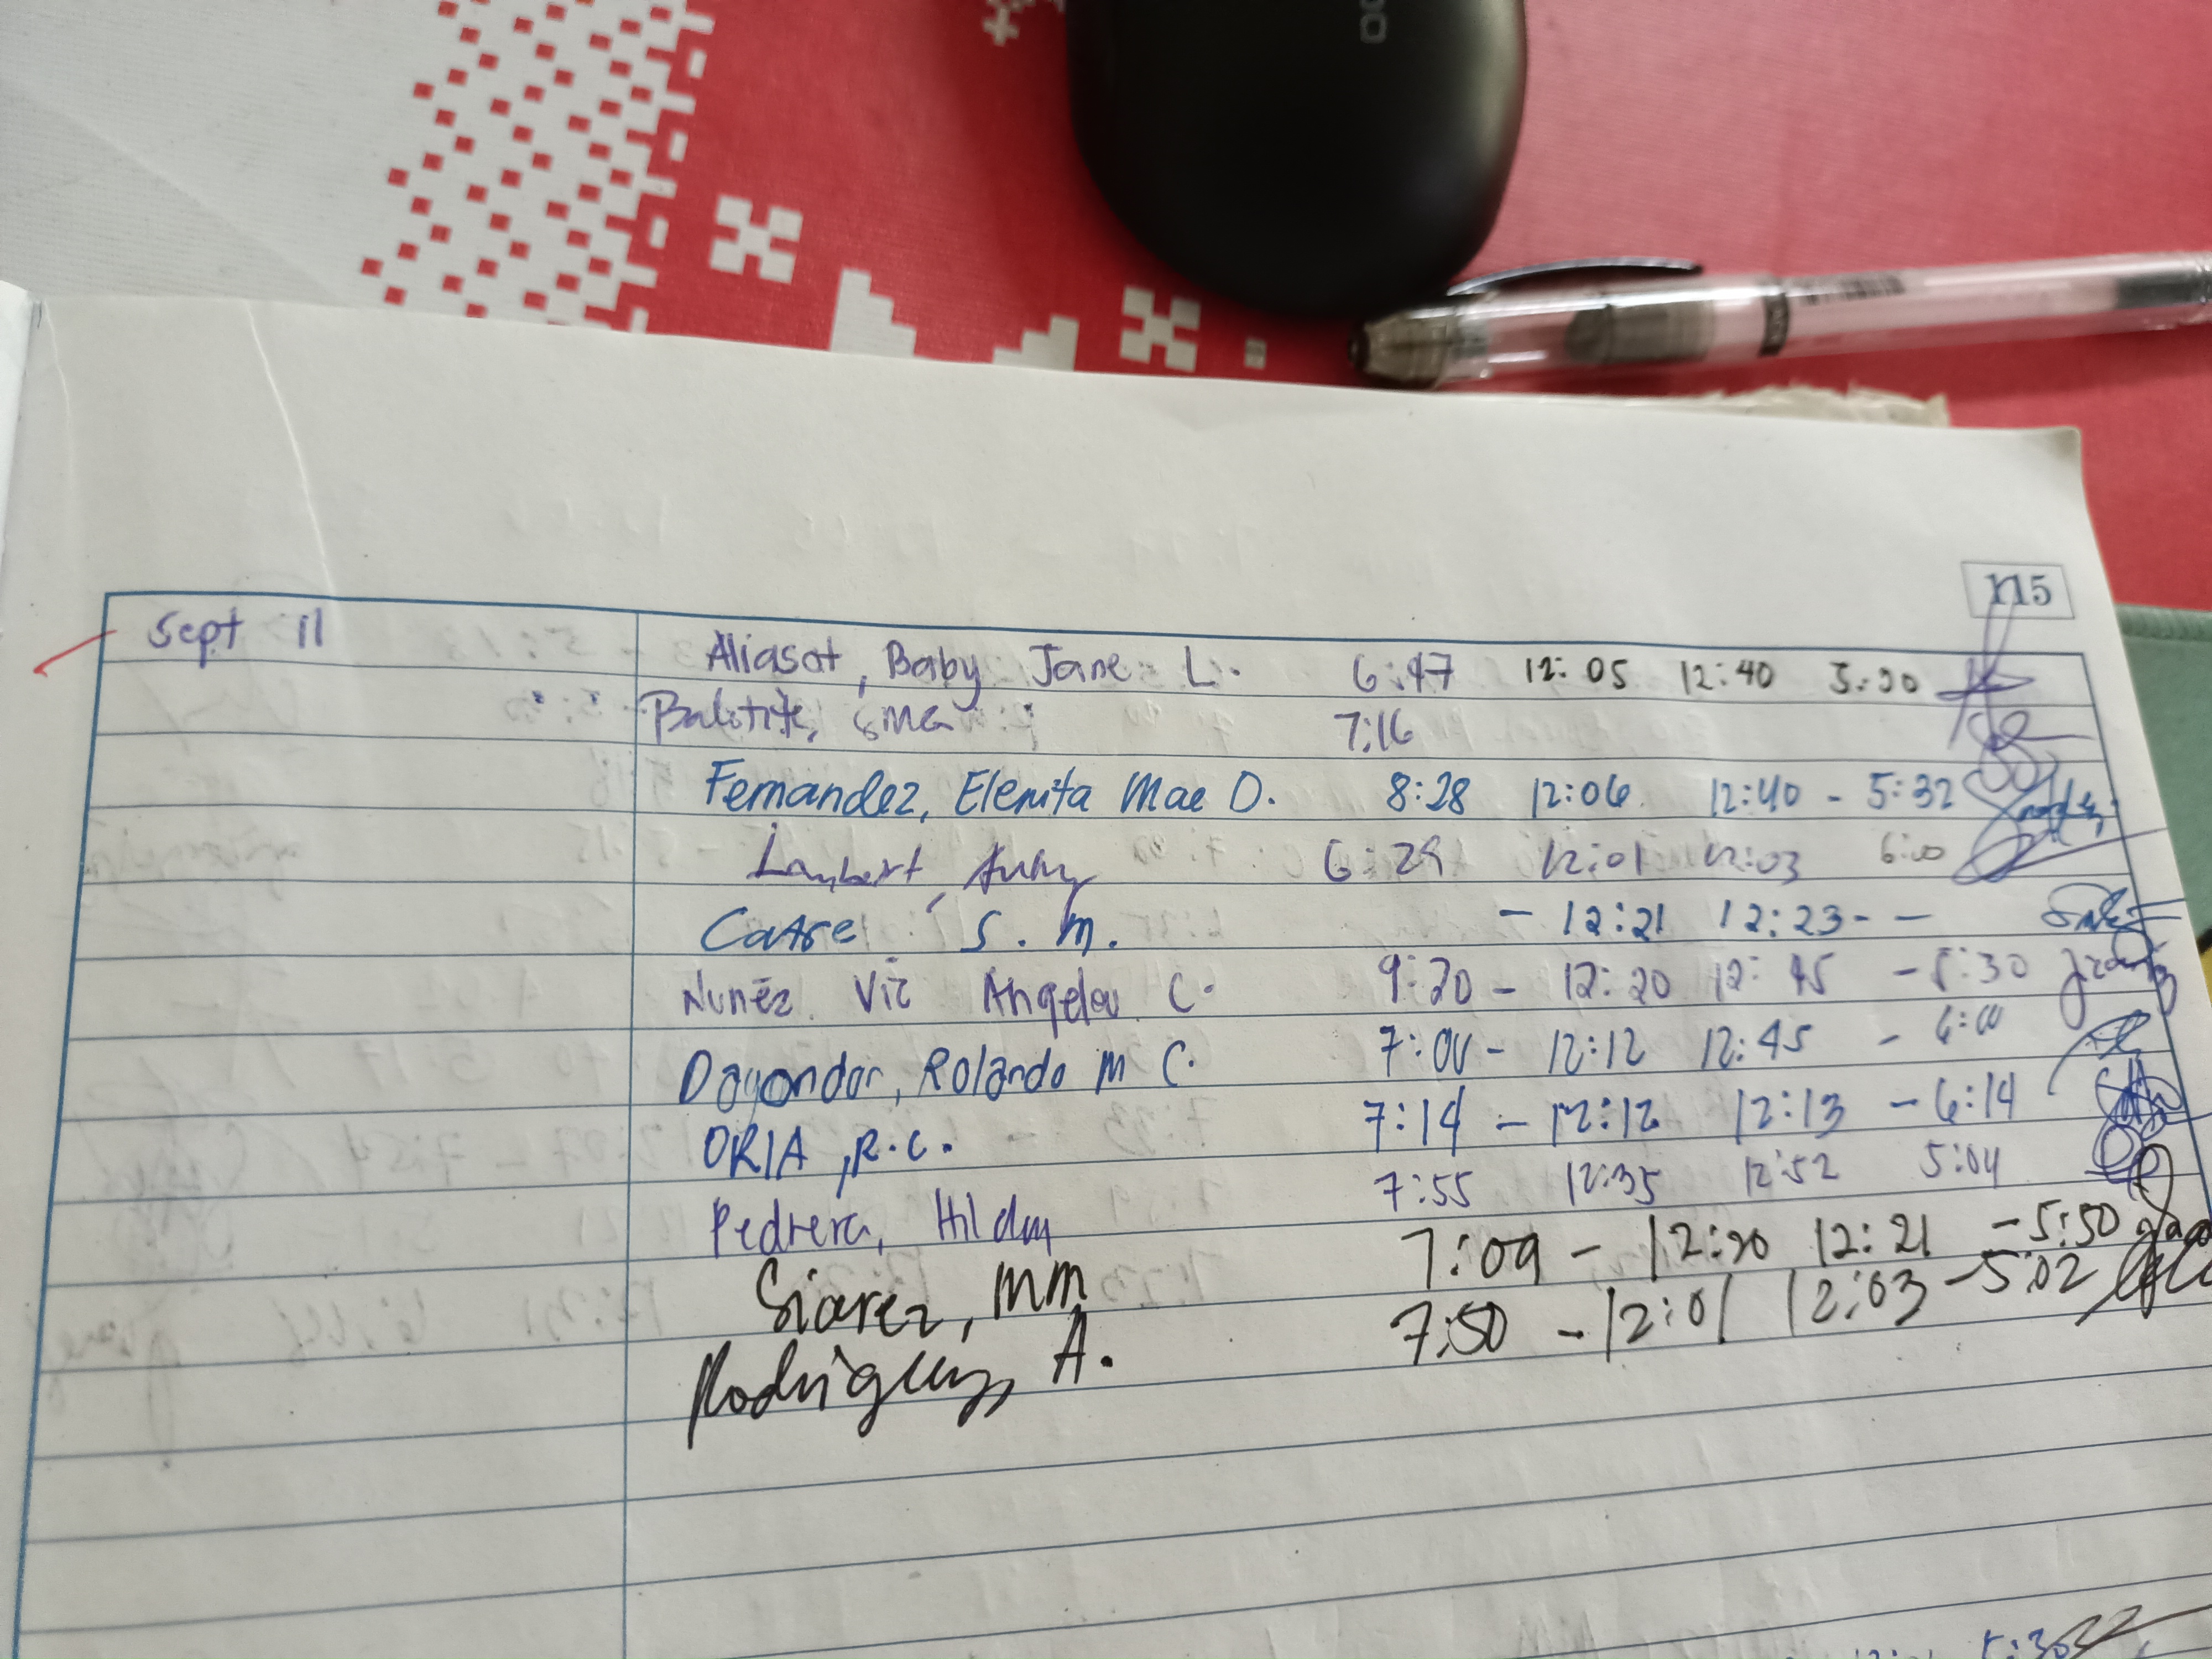 115
Sept 11
Aliasot, Baby Jane L. 6:47 12:05 12:40 5:20
7:16
Fernandez, Elenita Mae D. 8:28 12:06 12:40 - 5:32
Lambert, 6:29 12:01 12:03 6:00
Catre S. M. - 12:21 12:23 - -
Nuñez Vic Angelou C. 9:20 - 12:20 12:45 - 5:30
Dagondon, Rolando M C. 7:00 - 12:12 12:45 - 6:00
ORIA, R.C. 7:14 - 12:12 12:13 - 6:14
Pedrera, Hilda 7:55 12:35 12:52 5:04
Siarez, MM 7:09 - 12:20 12:21 - 5:50
Rodriguez, A. 7:50 - 12:01 12:03 - 5:02